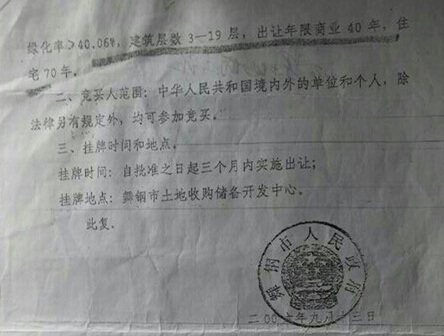 绿化率≥40.06%，建筑层数3—19层，出让年限商业40年，住
宅70年。
二、竞买人范围：中华人民共和国境内外的单位和个人，除
法律另有规定外，均可参加竞买。
三、挂牌时间和地点。
挂牌时间：自批准之日起三个月内实施出让；
挂牌地点：舞钢市土地收购储备开发中心。
此复。
舞钢市人民政府
二00 年九月 三日